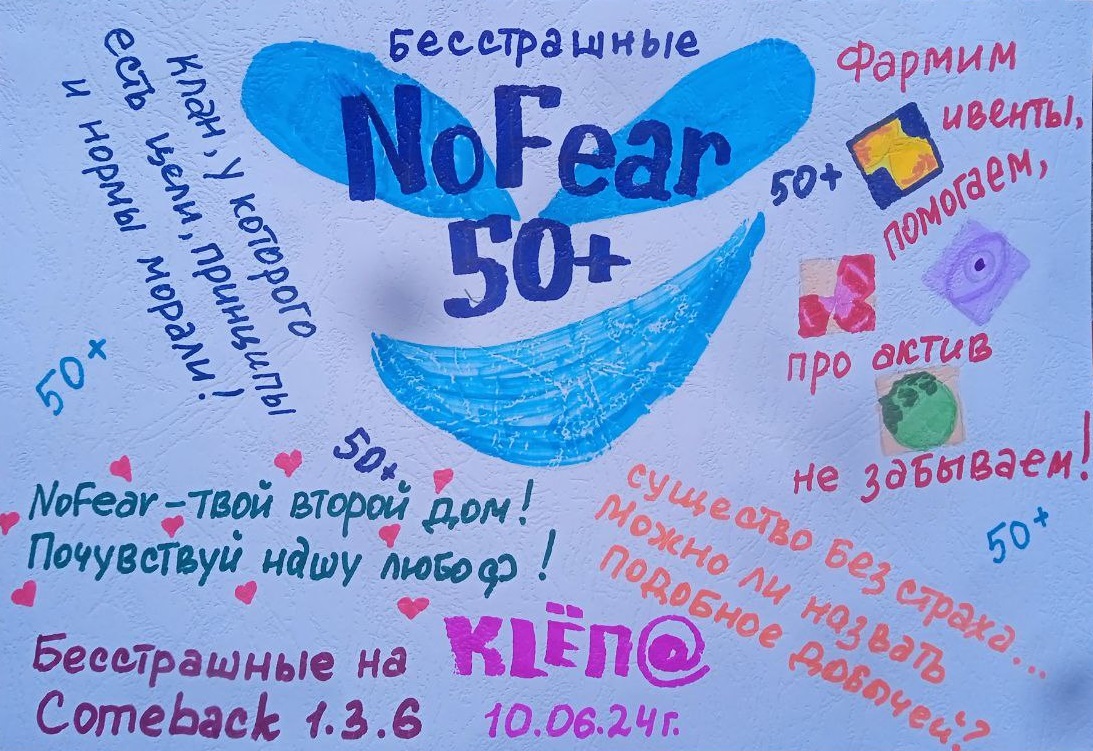 Бесстрашные
NoFear
50+
клан, у которого
есть цели, принципы
и нормы морали!
50+
50+
Фармим
ивенты,
50+
помогаем,
про актив
не забываем!
50+
NoFear-твой второй дом!
Почувствуй нашу любоф!
существо без страха...
Можно ли назвать
подобное добычей?
Бесстрашные на
Comeback 1.3.6
КLЁП@
10.06.24г.